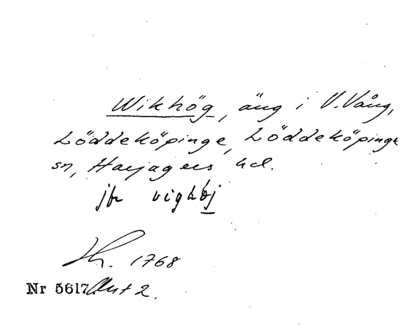 Wikhög, äng i V. Vång,
Löddeköpinge, Löddeköpinge
sn, Harjagers hd.
jfr vighöj
1768
Nr 5617 Akt 2.